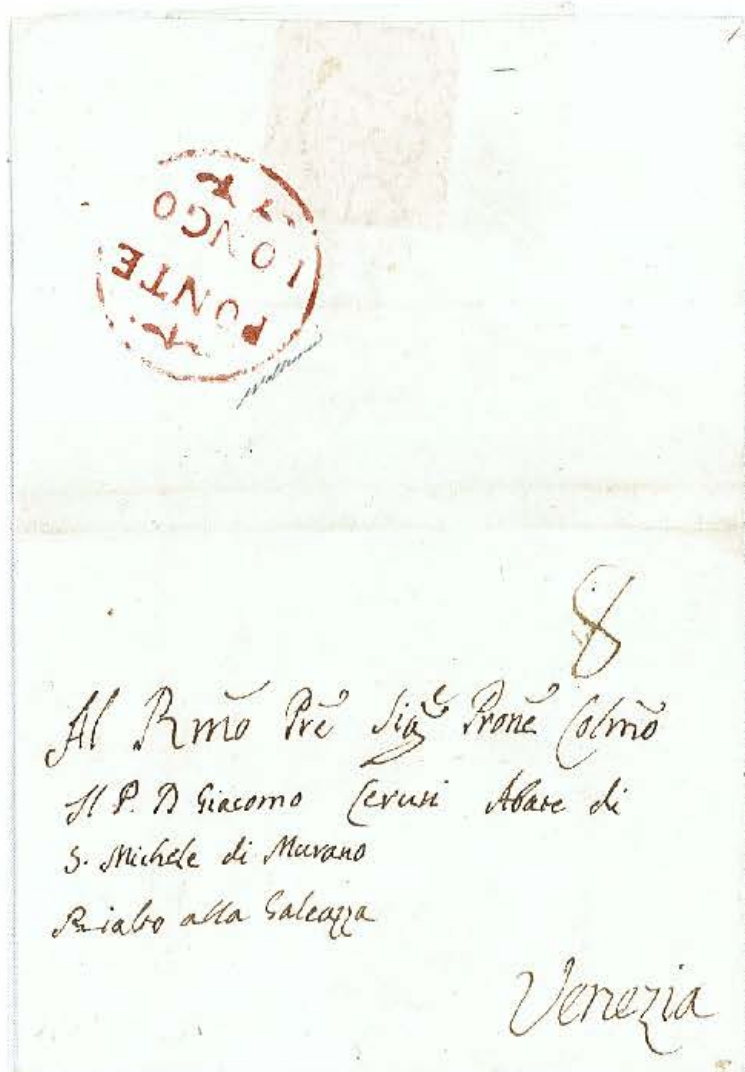 PONTE
LONGO
8
Al Rmo Pre Sigr Prone Colmo
Il P. D Giacomo Cerusi Abate di
S. Michele di Murano
Rialto alla Galeazza
Venezia